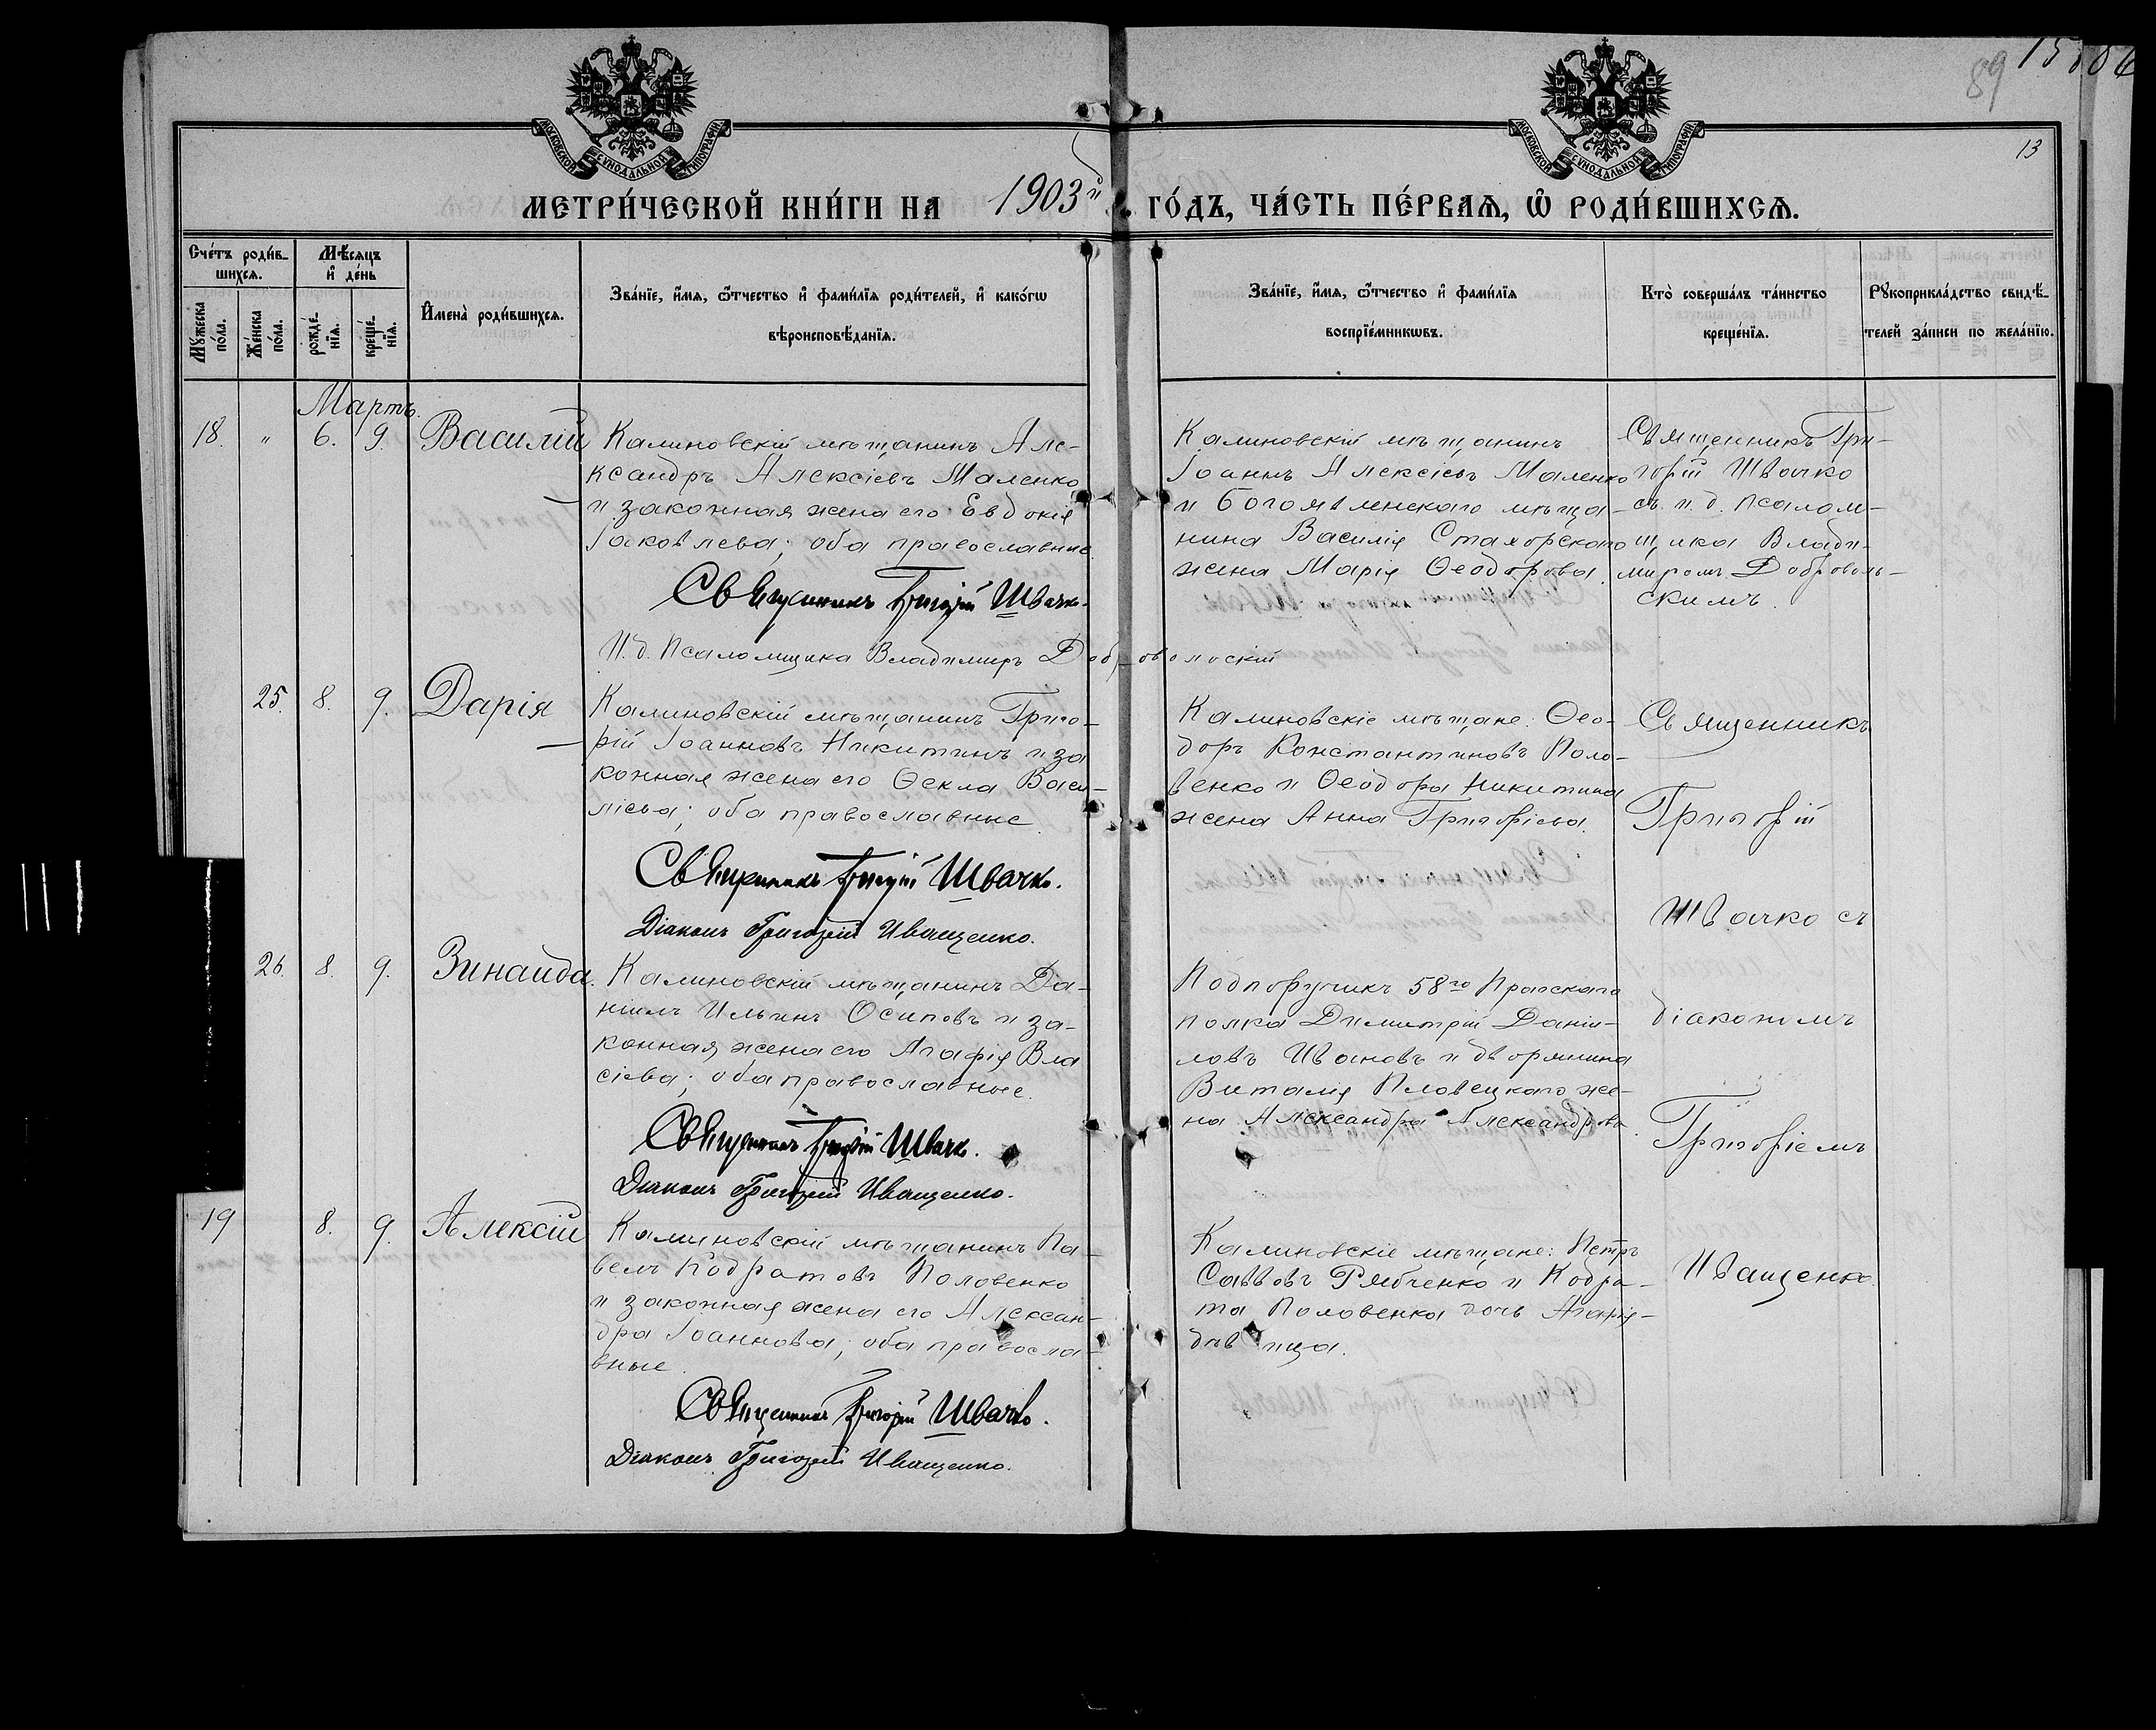 89
13
МОСКОВСКОЙ СѴНОДАЛЬНОЙ ТИПОГРАФІИ
МОСКОВСКОЙ СѴНОДАЛЬНОЙ ТИПОГРАФІИ
МЕТРИ́ЧЕСКОЙ КНИ́ГИ НА 1903й ГО́ДЪ, ЧА́СТЬ ПЕ́РВАѦ, Ѡ҆ РОДИ́ВШИХСѦ.
Сче́тъ роди́в-
шихсѧ.
Мꙋ́жеска по́ла.
Же́нска по́ла.
Мѣ́сѧцъ
и҆ де́нь
рожде́-
нїѧ.
креще́-
нїѧ.
И҆мена̀ роди́вшихсѧ.
Зва́нїе, и҆́мѧ, ѻ҆́тчество и҆ фами́лїѧ роди́телей, и҆ како́гѡ
вѣроисповѣ́данїѧ.
Зва́нїе, и҆́мѧ, ѻ҆́тчество и҆ фами́лїѧ
воспрїе́мникѡвъ.
Кто̀ соверша́лъ та́инство
креще́нїѧ.
Рꙋкоприкла́дство свидѣ́-
телей за́писи по жела́нїю.
Мартъ.
18. " 6. 9. Василій
Калиновскій мѣщанинъ Але-
ксандръ Алексіевъ Маленко
и законная жена его Евдокія
Іаковлева; оба православные.
Священникъ Григорій Швачко.
И. д. Псаломщика Владимиръ Добровольскій
Калиновскій мѣщанинъ
Іоаннъ Алексіевъ Маленко
и Богоявленскаго мѣща-
нина Василія Стахорскаго
жена Марія Ѳеодорова.
Священникъ Гри-
горій Швачко
съ и. д. псалом-
щика Влади-
миромъ Доброволь-
скимъ.
25. 8. 9. Дарія
Калиновскій мѣщанинъ Григо-
рій Іоанновъ Никитинъ и за
конная жена его Ѳекла Васи-
ліева; оба православные.
Священникъ Григорій Швачко.
Діаконъ Григорій Иващенко.
Калиновскіе мѣщане: Ѳео-
доръ Константиновъ Поло-
венко и Ѳеодора Никитина
жена Анна Григоріева.
Священникъ
Григорій
Швачко съ
діакономъ
Григоріемъ
Иващенко.
26. 8. 9. Зинаида.
Калиновскій мѣщанинъ Да-
ніилъ Ильинъ Осиповъ и за-
конная жена его Агафія Вла
сіева; оба православные.
Священникъ Григорій Швачко.
Діаконъ Григорій Иващенко.
Подпоручикъ 58го Прагскаго
полка Димитрій Даніи-
ловъ Ивановъ и дворянина
Виталія Пловецкаго же-
на Александра Александрова.
19 8. 9. Алексій
Калиновскій мѣщанинъ Па-
велъ Кодратовъ Половенко
и законная жена его Алексан-
дра Іоаннова; оба правосла-
вные.
Священникъ Григорій Швачко.
Діаконъ Григорій Иващенко.
Калиновскіе мѣщане: Петръ
Саввовъ Рябченко и Кодра-
та Половенка дочь Агафія-
дѣвица.